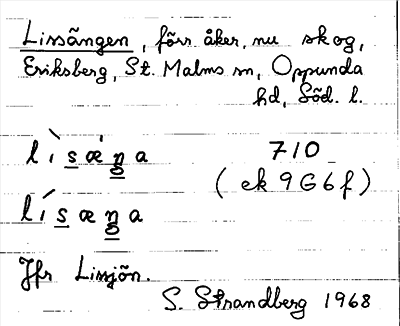 Lissängen, förr åker, nu skog,
Eriksberg, St. Malms sn, Oppunda
hd, Söd. l.
lìsæ̀ŋa 710
(ek 9G6f)
lísæŋa
Jfr Lissjön.
S. Strandberg 1968